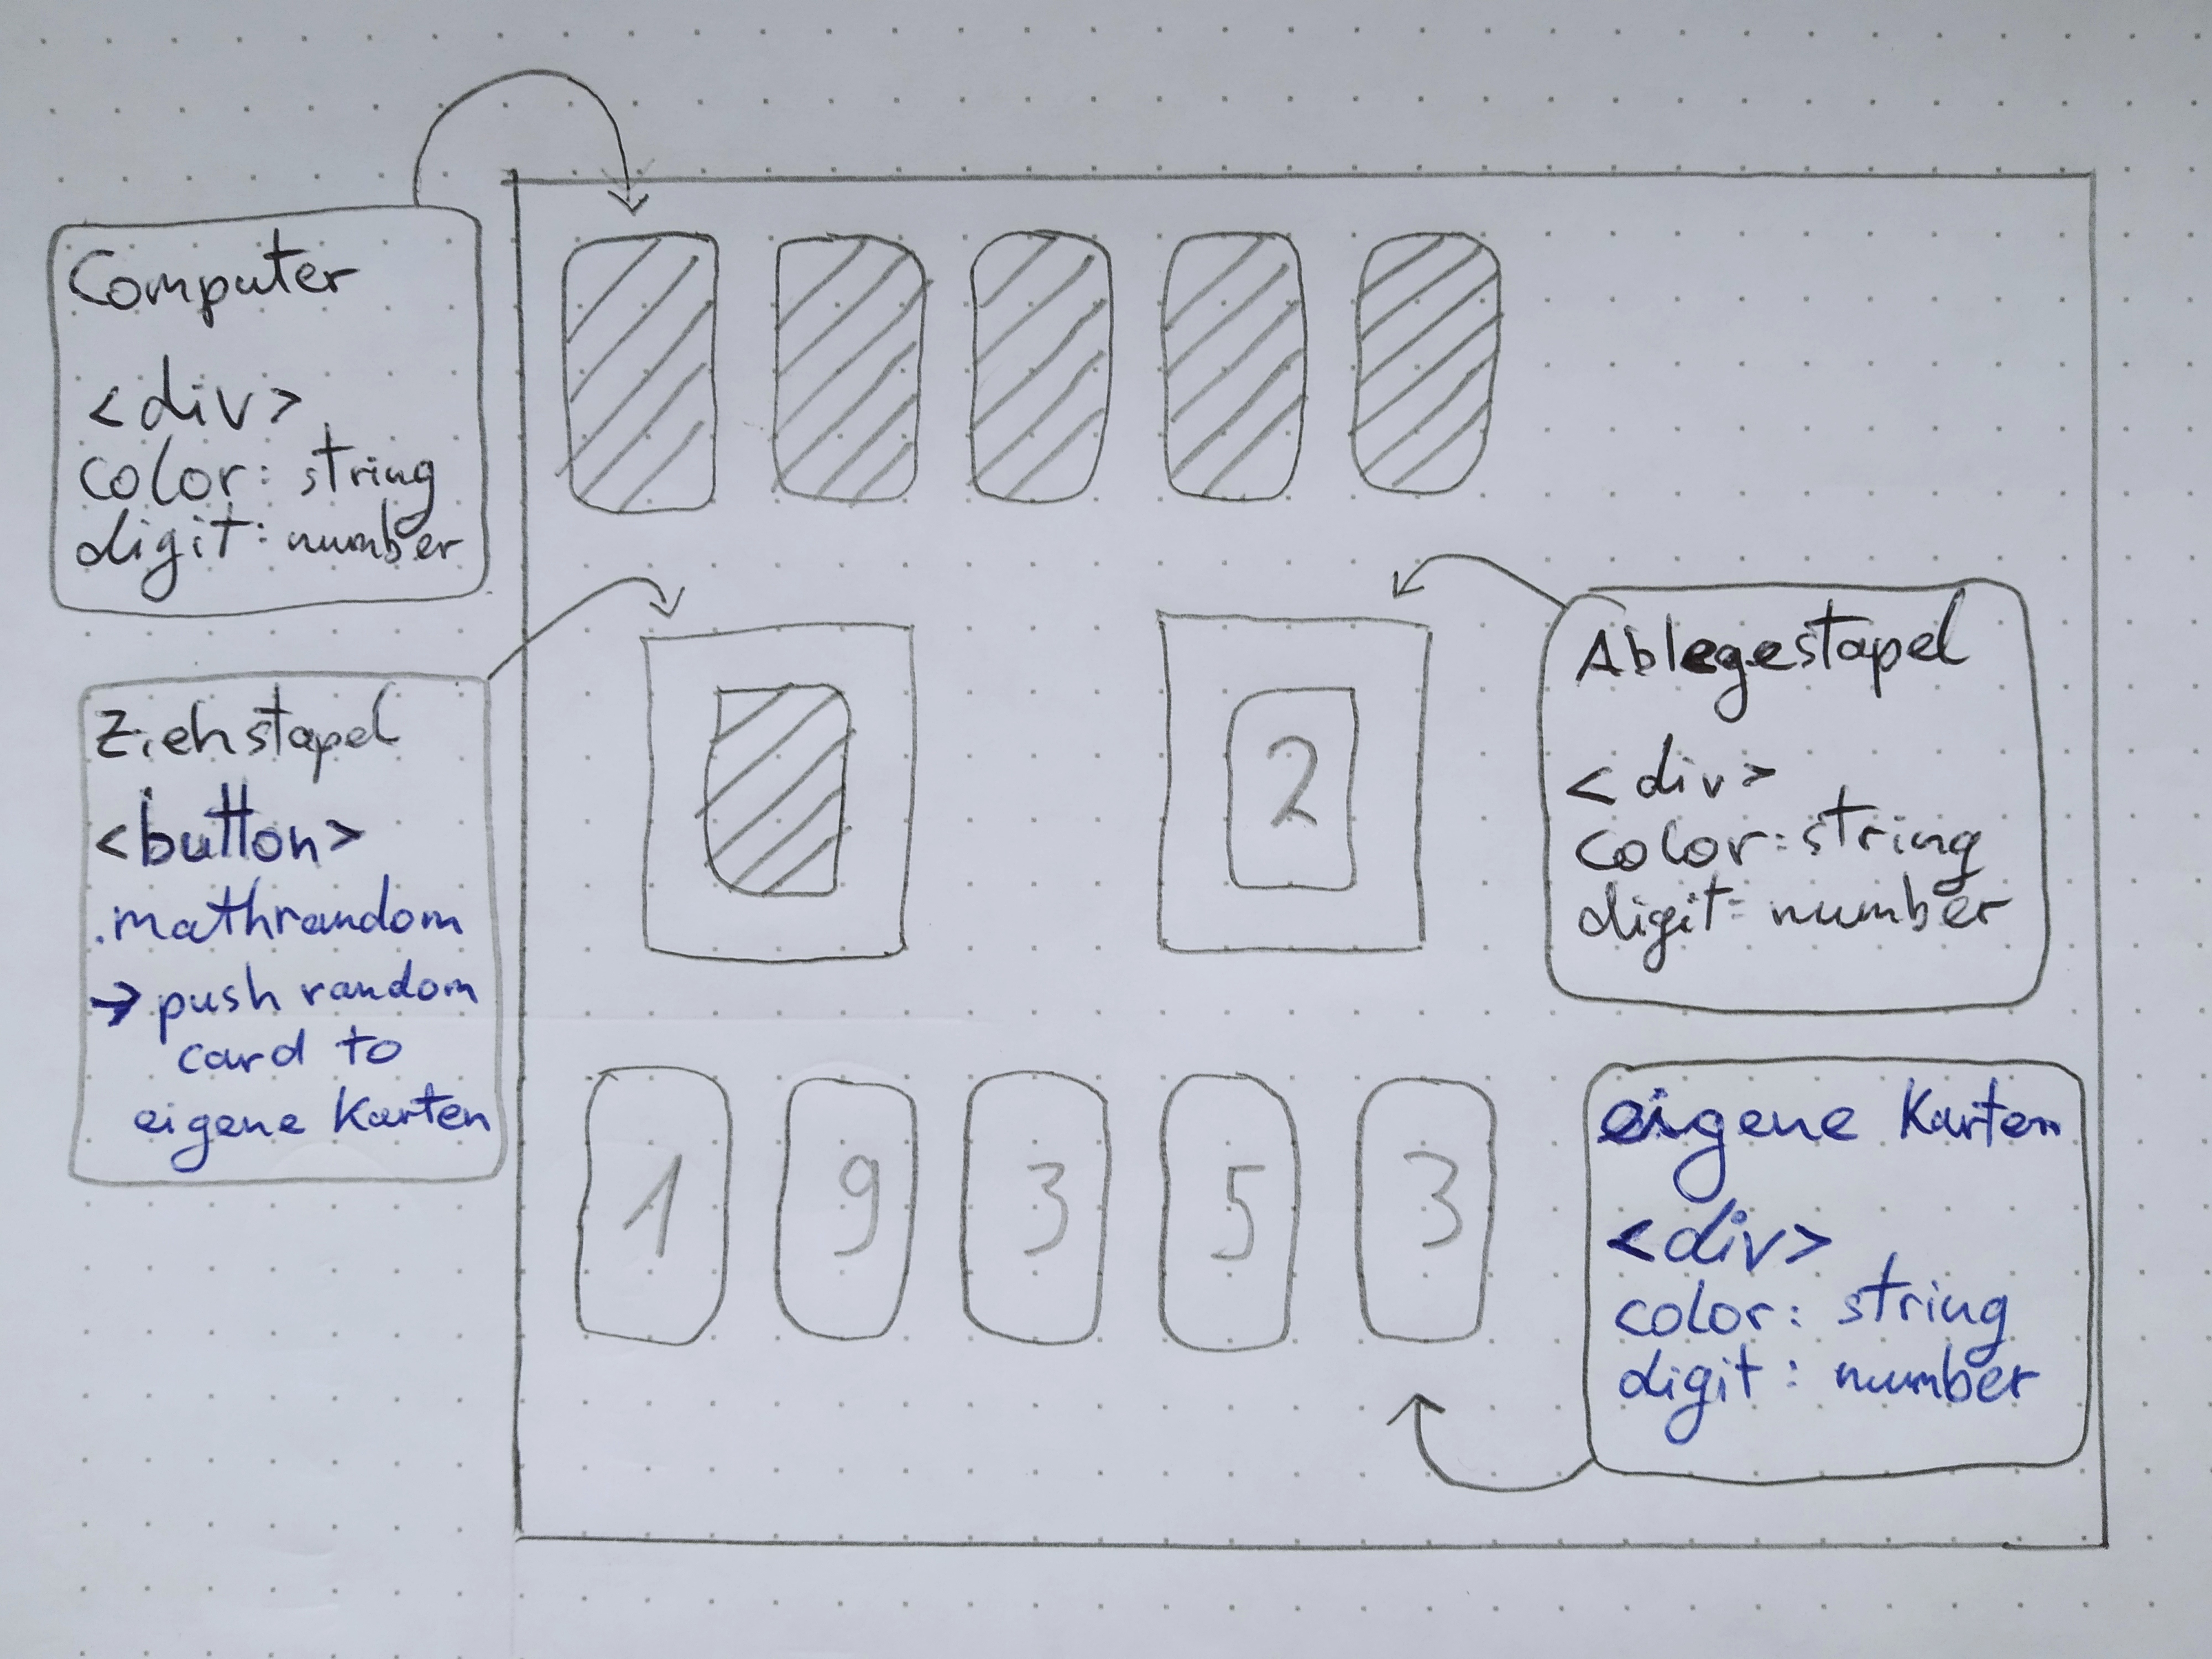 Computer
<div>
color: string
digit: number
Ziehstapel
<button>
.mathrandom
→ push random
card to
eigene Karten
2
Ablegestapel
<div>
color: string
digit: number
1 9 3 5 3
eigene Karten
<div>
color: string
digit: number